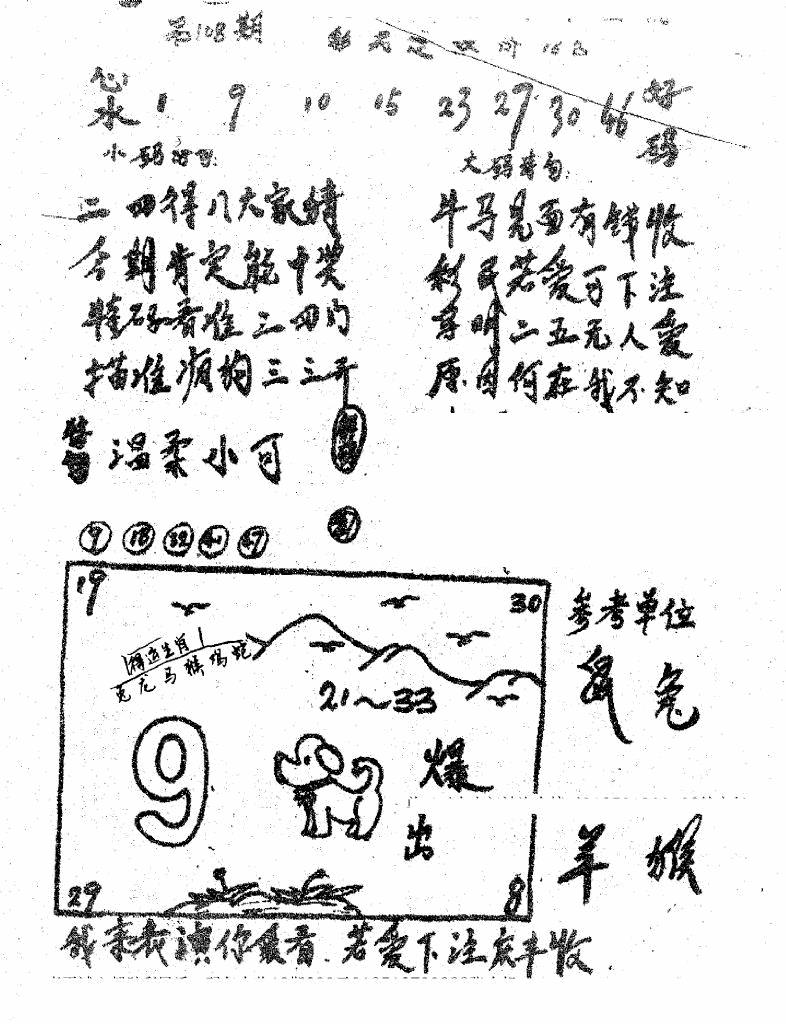 第108期
心水 1 9 10 15 23 27 30 46 好码
小码诗句:
二四得八大家猜
今期肯定能中奖
特码看准三四门
描准淍购三三开
大码诗句:
牛马见面有钱收
彩民若爱可下注
单明二五无人爱
原因何在我不知
特码 温柔小可
9 18 32 41 47
19
30
相迎生肖
兔龙马猴鸡蛇
21～33
9
爆出
29
8
参考单位
鼠 兔
羊 猴
我来表演你最看.若爱下注庆丰收.